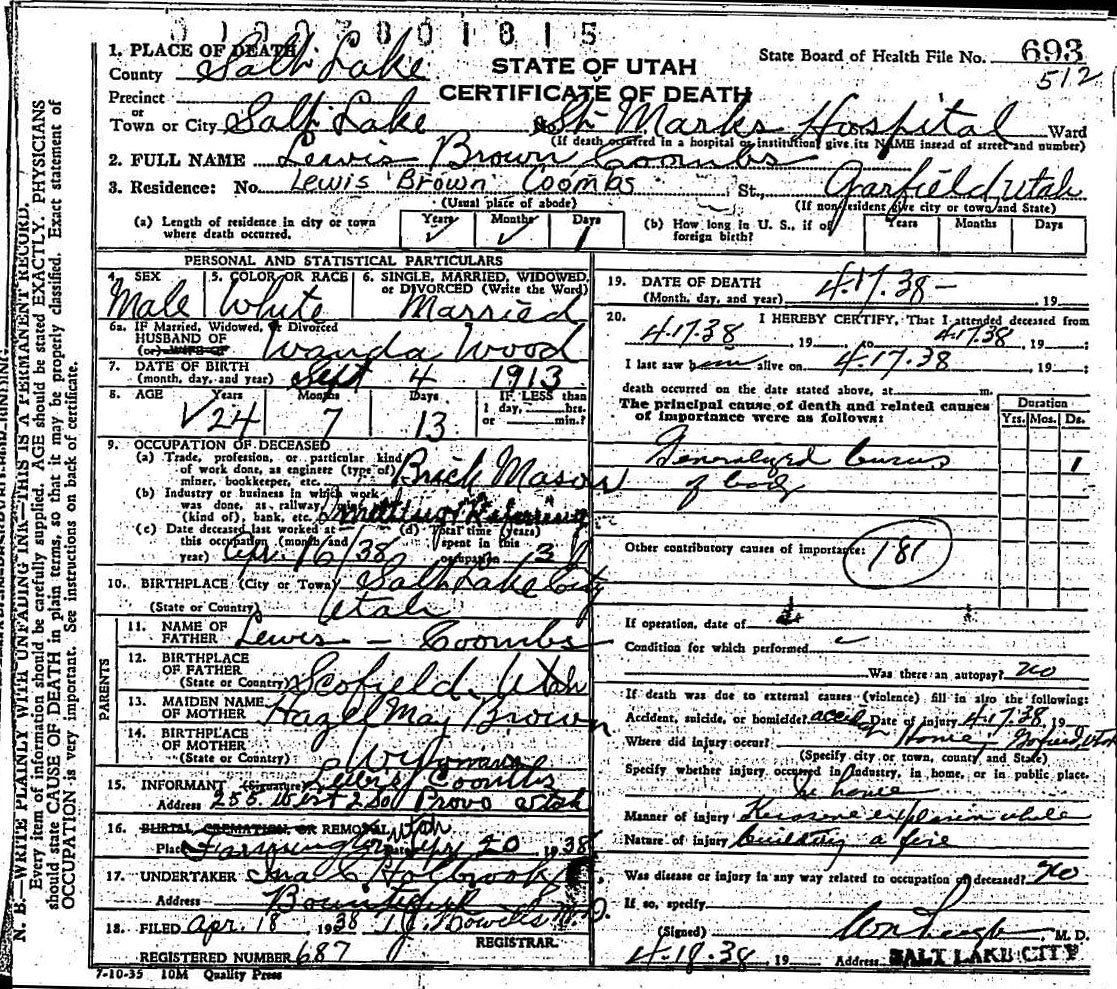 0100801815
1. PLACE OF DEATH
County Salt Lake
STATE OF UTAH
CERTIFICATE OF DEATH
State Board of Health File No. 693
512
Precinct
or
Town or City Salt Lake No. St. Marks Hospital Ward
(If death occurred in a hospital or institution, give its NAME insead of street and number)
2. FULL NAME Lewis Brown Coombs
3. Residence: No. Lewis Brown Coombs St., Garfield, Utah
(Usual place of abode) (If nonresident give city or town and State)
(a) Length of residence in city or town where death occurred. Years ✓ Months ✓ Days 1
(b) How long in U. S., if of foreign birth? Years Months Days
PERSONAL AND STATISTICAL PARTICULARS
4. SEX Male
5. COLOR OR RACE White
6. SINGLE, MARRIED, WIDOWED, or DIVORCED (Write the Word) Married
6a. IF Married, Widowed, or Divorced
HUSBAND OF
(or) WIFE OF Wanda Wood
7. DATE OF BIRTH
(month, day, and year) Sept 4 1913
8. AGE Years 24 Months 7 Days 13 IF LESS than 1 day, hrs. or min.?
9. OCCUPATION OF DECEASED
(a) Trade, profession, or particular kind
of work done, as engineer (type of)
miner, bookkeeper, etc. Brick Mason
(b) Industry or business in which work
was done, as railway,
(kind of), bank, etc. Smelting & Refining
(c) Date deceased last worked at
this occupation (month and
year) Apr. 16/38
(d) Total time (years)
spent in this
occupation 3
10. BIRTHPLACE (City or Town) Salt Lake City
(State or Country) Utah
PARENTS
11. NAME OF
FATHER Lewis - Coombs
12. BIRTHPLACE
OF FATHER
(State or Country) Scofield Utah
13. MAIDEN NAME
OF MOTHER Hazel May Brown
14. BIRTHPLACE
OF MOTHER
(State or Country) Wyoming
15. INFORMANT (Signature) Lewis Coombs
Address 255 West 2 So Provo Utah
16. BURIAL, CREMATION, OR REMOVAL Utah
Place Farmington Date Apr 20 1938
17. UNDERTAKER Holbrook
Address Bountiful
18. FILED Apr. 18 1938 M.D.
REGISTRAR.
REGISTERED NUMBER 687
7-10-35 10M Quality Press
19. DATE OF DEATH
(Month, day, and year) 4.17.38 - 19
20. I HEREBY CERTIFY, That I attended deceased from
4.17.38, 19, to 4.17.38, 19:
I last saw him alive on 4.17.38, 19:
death occurred on the date stated above, at m.
The principal cause of death and related causes
of importance were as follows:
Duration
Yrs. Mos. Ds.
Generalized burns 1
of body
Other contributory causes of importance: 181
If operation, date of
Condition for which performed
Was there an autopsy? no
If death was due to external causes (violence) fill in also the following:
Accident, suicide, or homicide? accid Date of injury 4.17.38 19
Where did injury occur? Home, Garfield, Utah
(Specify city or town, county, and State)
Specify whether injury occurred in Industry, in home, or in public place.
In home
Manner of injury Kerosene explosion while
Nature of injury building a fire
Was disease or injury in any way related to occupation of deceased? no
If so, specify
(Signed) M. D.
4.18.38, 19 Address SALT LAKE CITY
N. B.—WRITE PLAINLY WITH UNFADING INK—THIS IS A PERMANENT RECORD.
Every item of information should be carefully supplied. AGE should be stated EXACTLY. PHYSICIANS
should state CAUSE OF DEATH in plain terms, so that it may be properly classified. Exact statement of
OCCUPATION is very important. See instructions on back of certificate.